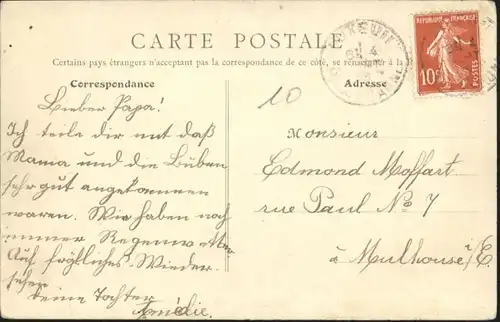 CARTE POSTALE
Certains pays étrangers n'acceptant pas la correspondance de ce côté, se renseigner à la
Correspondance
Adresse
RÉPUBLIQUE FRANÇAISE
10c
POSTES
10
Lieber Papa!
Ich teile dir mit daß
Mama und die Büben
sehr gut angekommen
waren. Wir haben noch
immer Regenwetter.
Auf fröhliches Wieder-
sehen
deine Tochter
Amélie.
Monsieur
Edmond Moffart
rue Paul No 7
à Mulhouse i/E.